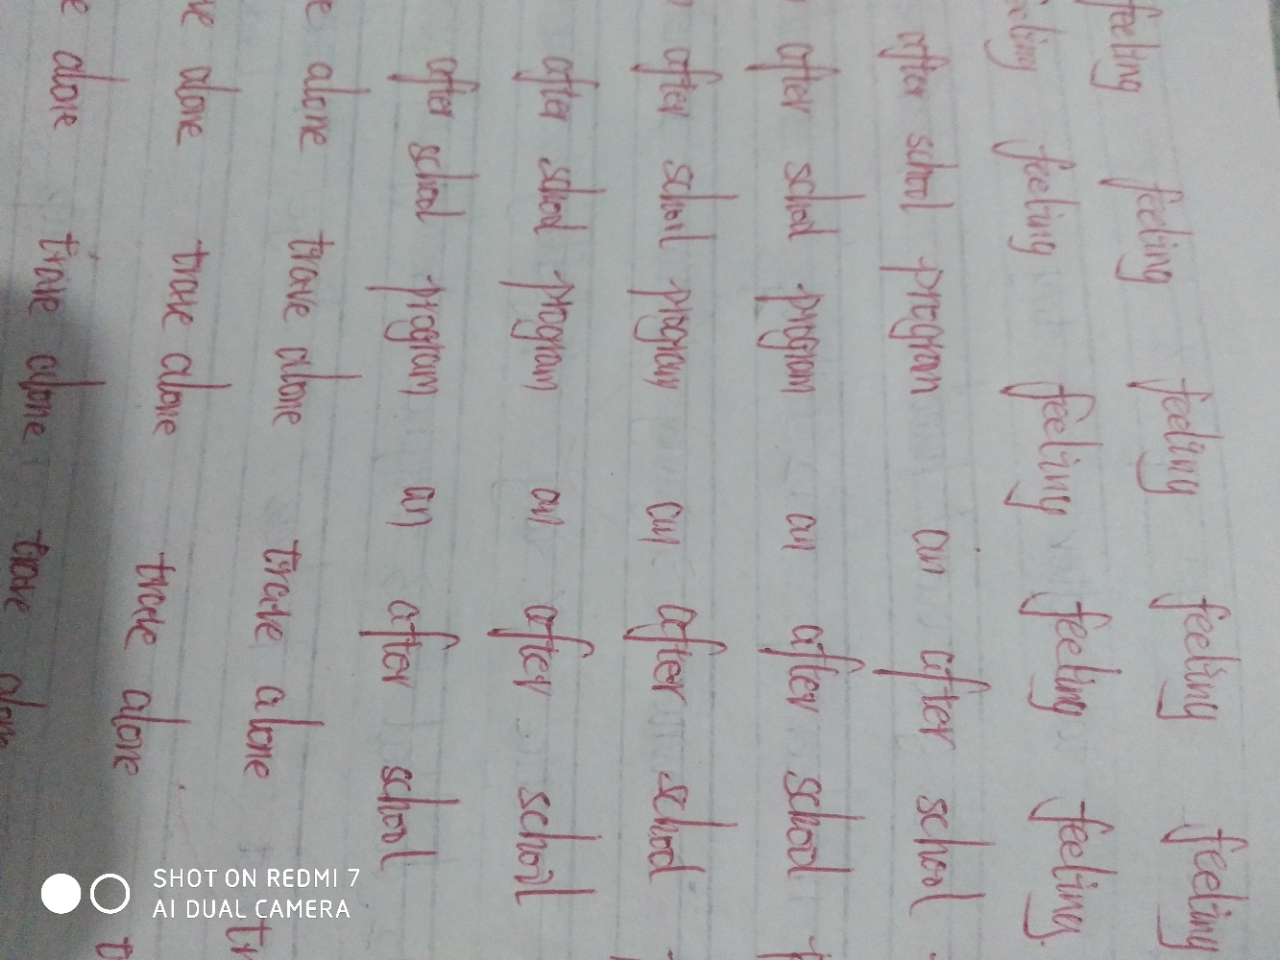 feeling feeling feeling feeling feeling
feeling feeling feeling feeling feeling
after school program an after school
after school program an after school
after school program an after school
after school program an after school
after school program an after school
alone trave alone trave alone
alone trave alone trave alone
alone trave alone trave alone
SHOT ON REDMI 7
AI DUAL CAMERA